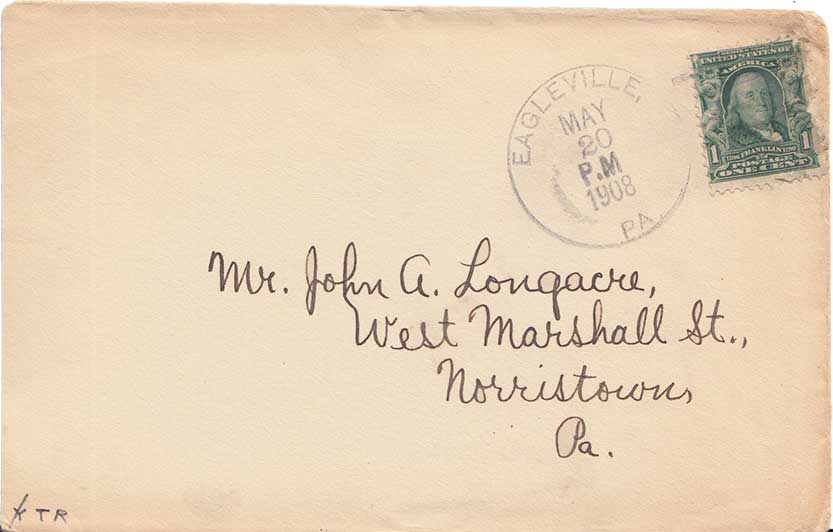 EAGLEVILLE,
MAY
20
P.M
1908
PA.
UNITED STATES OF
AMERICA
1 1706 FRANKLIN 1790 1
POSTAGE
ONE CENT
Mr. John A. Longacre,
West Marshall St.,
Norristown,
Pa.
TR